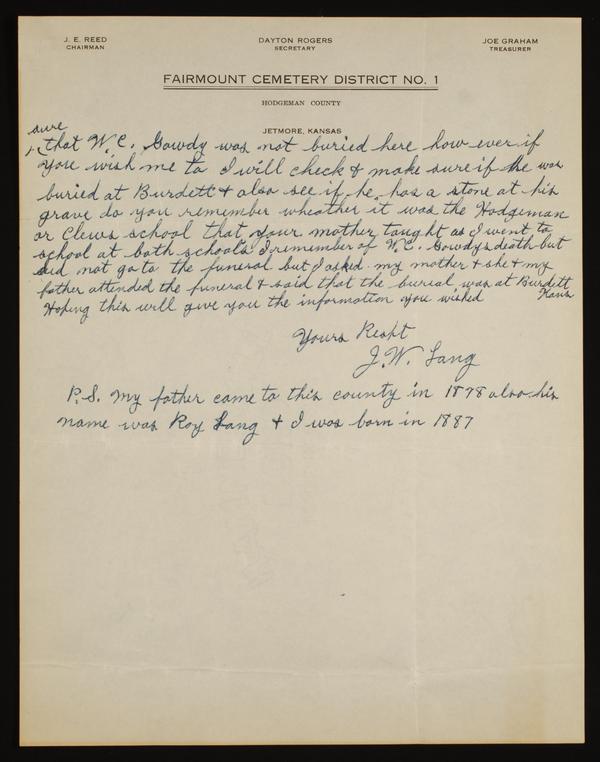 J. E. REED
CHAIRMAN
DAYTON ROGERS
SECRETARY
JOE GRAHAM
TREASURER
FAIRMOUNT CEMETERY DISTRICT NO. 1
HODGEMAN COUNTY
JETMORE, KANSAS
sure
that W. C. Gowdy was not buried here how ever if
you wish me to I will check & make sure if he was
buried at Burdett & also see if he has a stone at his
grave do you remember wheather it was the Hodgeman
or Clews school that your mother taught as I went to
school at both schools I remember of W. C. Gowdys death but
did not go to the funeral but I asked my mother & she & my
father attended the funeral & said that the burial was at Burdett
Kans
Hoping this will give you the information you wished
Yours Respt
J. W. Lang
P.S. My father came to this county in 1878 also his
name was Roy Lang & I was born in 1887